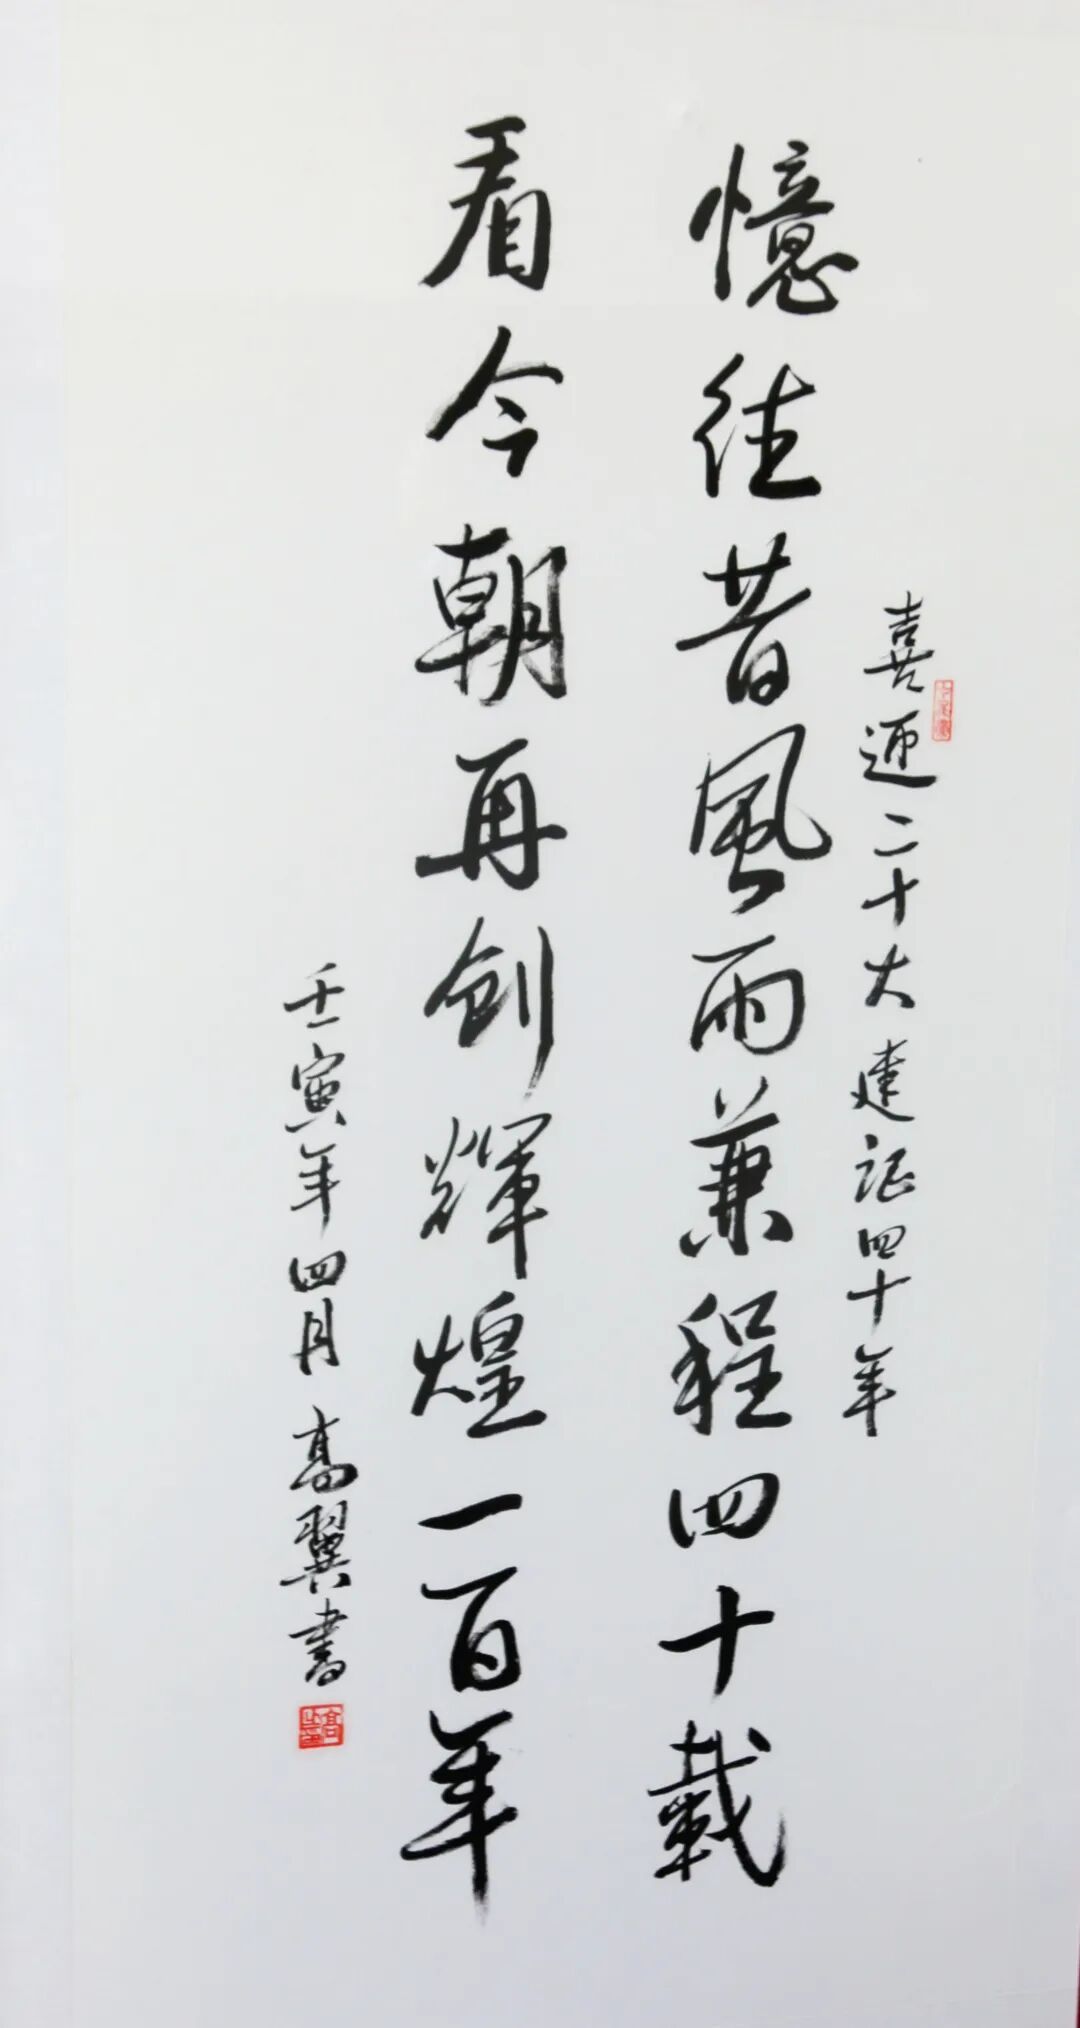 喜迎二十大建证四十年
憶往昔風雨兼程四十載
看今朝再創輝煌一百年
壬寅年四月高翼書